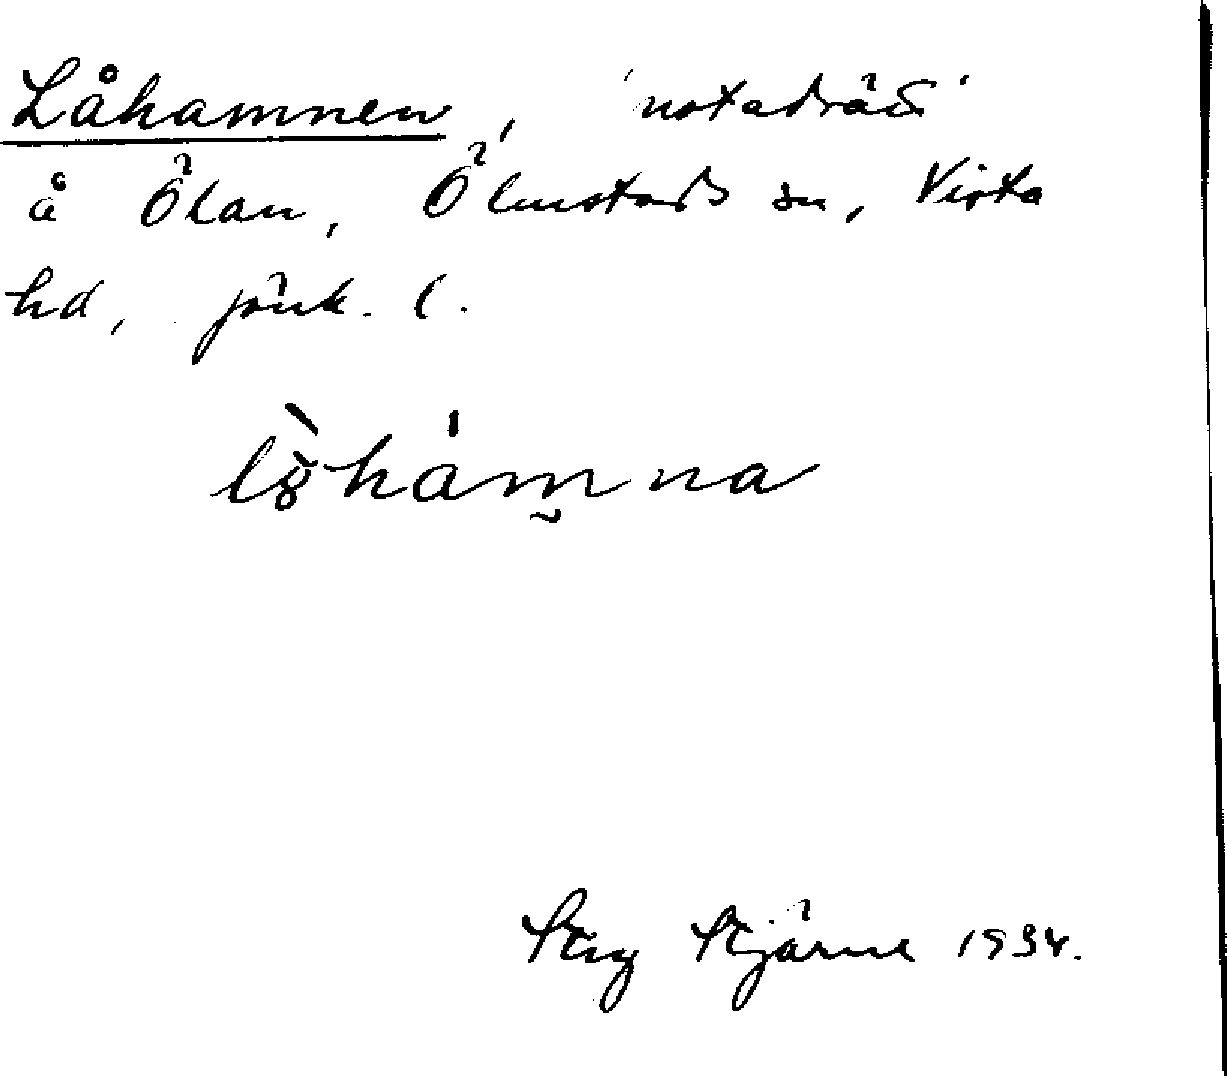 Låhamnen, 'notadräkt'
å Ölan, Ölmstads sn, Vista
hd, Jönk. l.
lo̊̀hàmna
Stig Stjärne 1934.